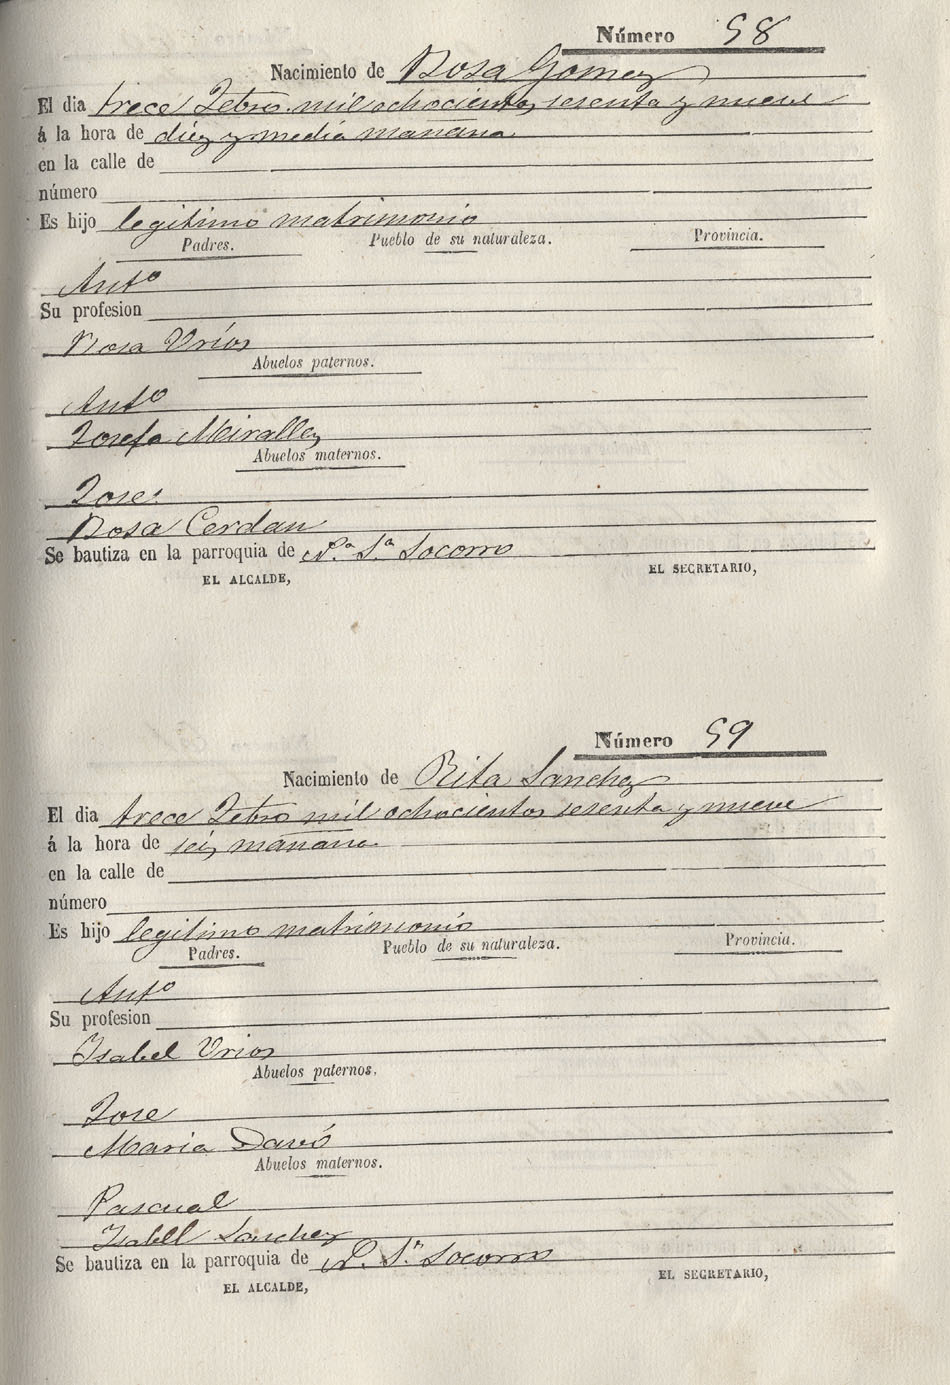 Número 58
Nacimiento de Rosa Gomez
El dia trece Febro. mil ochocientos sesenta y nueve
á la hora de diez y media mañana
en la calle de
número
Es hijo legitimo matrimonio
Padres. Pueblo de su naturaleza. Provincia.
Anto
Su profesion
Rosa Vrios
Abuelos paternos.
Anto
Josefa Miralles
Abuelos maternos.
Jose
Rosa Cerdan
Se bautiza en la parroquia de N.a S.a Socorro
EL ALCALDE, EL SECRETARIO,
Número 59
Nacimiento de Rita Sanchez
El dia trece Febro mil ochocientos sesenta y nueve
á la hora de seis mañana
en la calle de
número
Es hijo legitimo matrimonio
Padres. Pueblo de su naturaleza. Provincia.
Anto
Su profesion
Isabel Vrios
Abuelos paternos.
Jose
Maria Davó
Abuelos maternos.
Pascual
Isabel Sanchez
Se bautiza en la parroquia de N. S.a Socorro
EL ALCALDE, EL SECRETARIO,